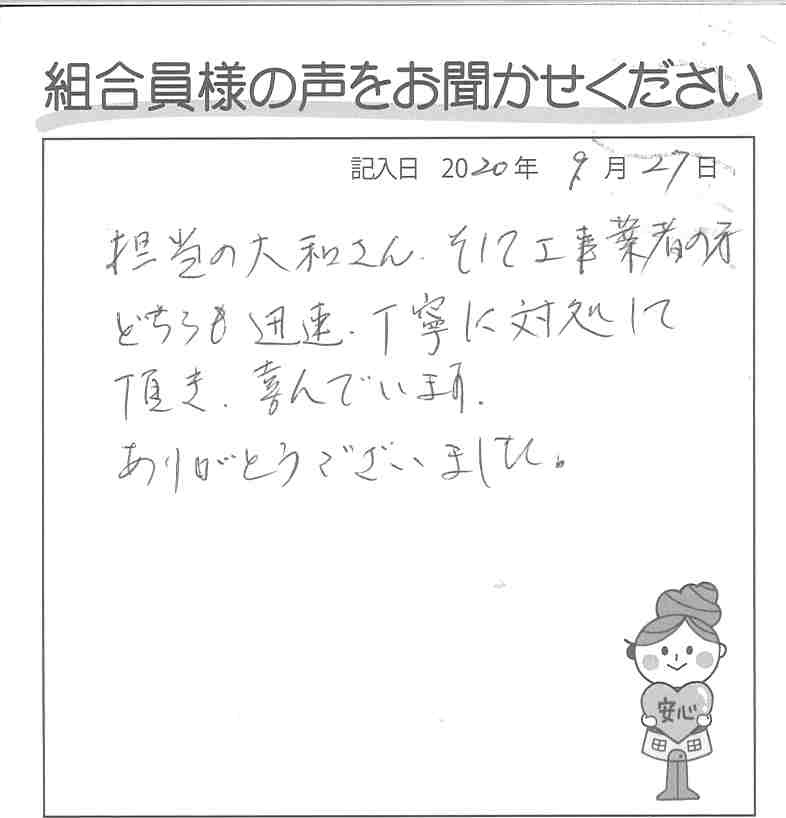 組合員様の声をお聞かせください
記入日 2020年 9月27日
担当の大和さん、そして工事業者の方
どちらも迅速、丁寧に対処して
頂き、喜んでいます。
ありがとうございました。
安心